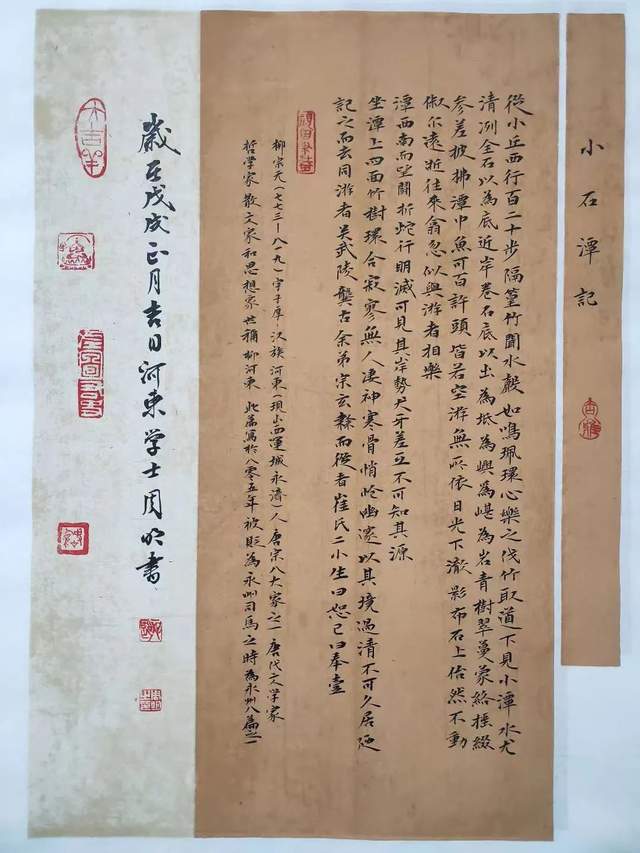 小石潭記
從小丘西行百二十步隔篁竹聞水聲如鳴珮環心樂之伐竹取道下見小潭水尤
清冽全石以為底近岸卷石底以出為坻為嶼為嵁為岩青樹翠蔓蒙絡搖綴
參差披拂潭中魚可百許頭皆若空游無所依日光下澈影布石上佁然不動
俶尔遠逝往來翕忽似與游者相樂
潭西南而望鬭折蛇行明滅可見其岸勢犬牙差互不可知其源
坐潭上四面竹樹環合寂寥無人凄神寒骨悄愴幽邃以其境過清不可久居迺
記之而去同游者吴武陵龔古余弟宗玄隸而從者崔氏二小生曰恕己曰奉壹
柳宗元(七七三-八一九)字子厚漢族河東(現山西運城永濟)人唐宗八大家之一唐代文学家
哲學家散文家和思想家世稱柳河東此篇寫於八零五年被貶為永州司馬之時為永州八篇之一
歲在戊戌正月吉日河東学士周明書
大吉羊